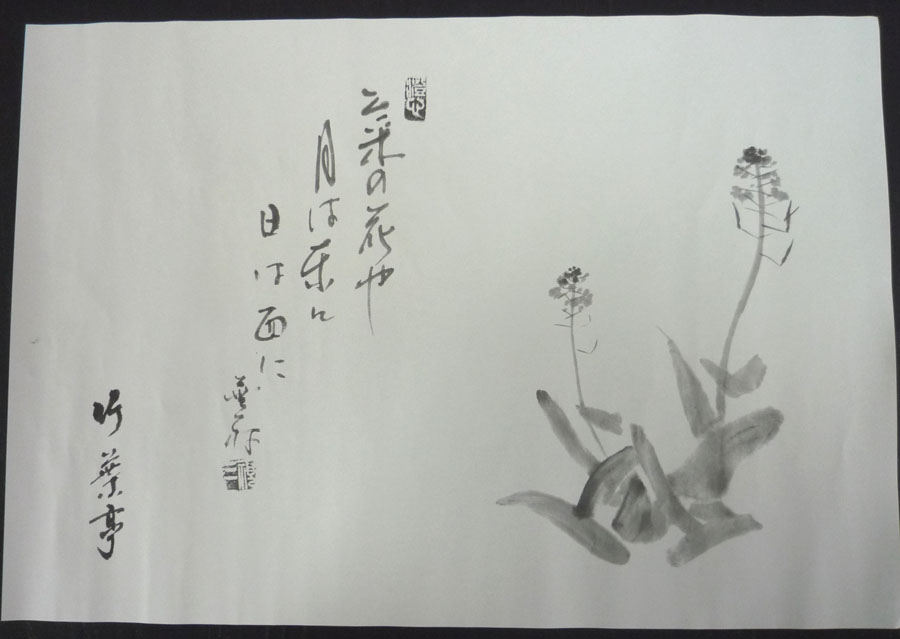 菜の花や
月は東に
日は西に
竹葉亭